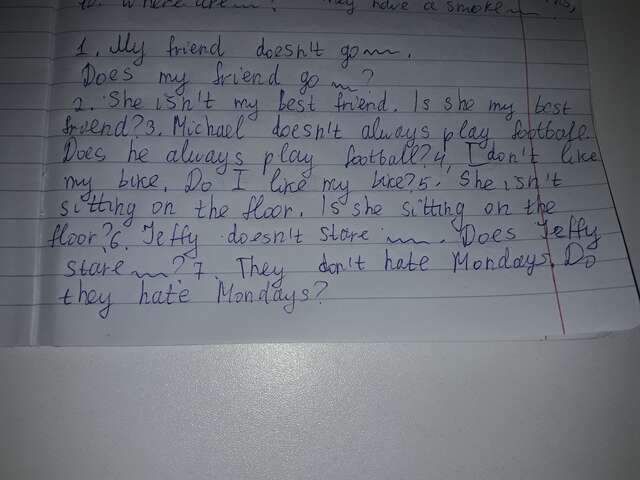 10. Where are ? They have a smoke
1. My friend doesn't go .
Does my friend go ?
2. She isn't my best friend. Is she my best
friend? 3. Michael doesn't always play football.
Does he always play football? 4. I don't like
my bike. Do I like my bike? 5. She isn't
sitting on the floor. Is she sitting on the
floor? 6. Jeffy doesn't stare . Does Jeffy
stare ? 7. They don't hate Mondays. Do
they hate Mondays?